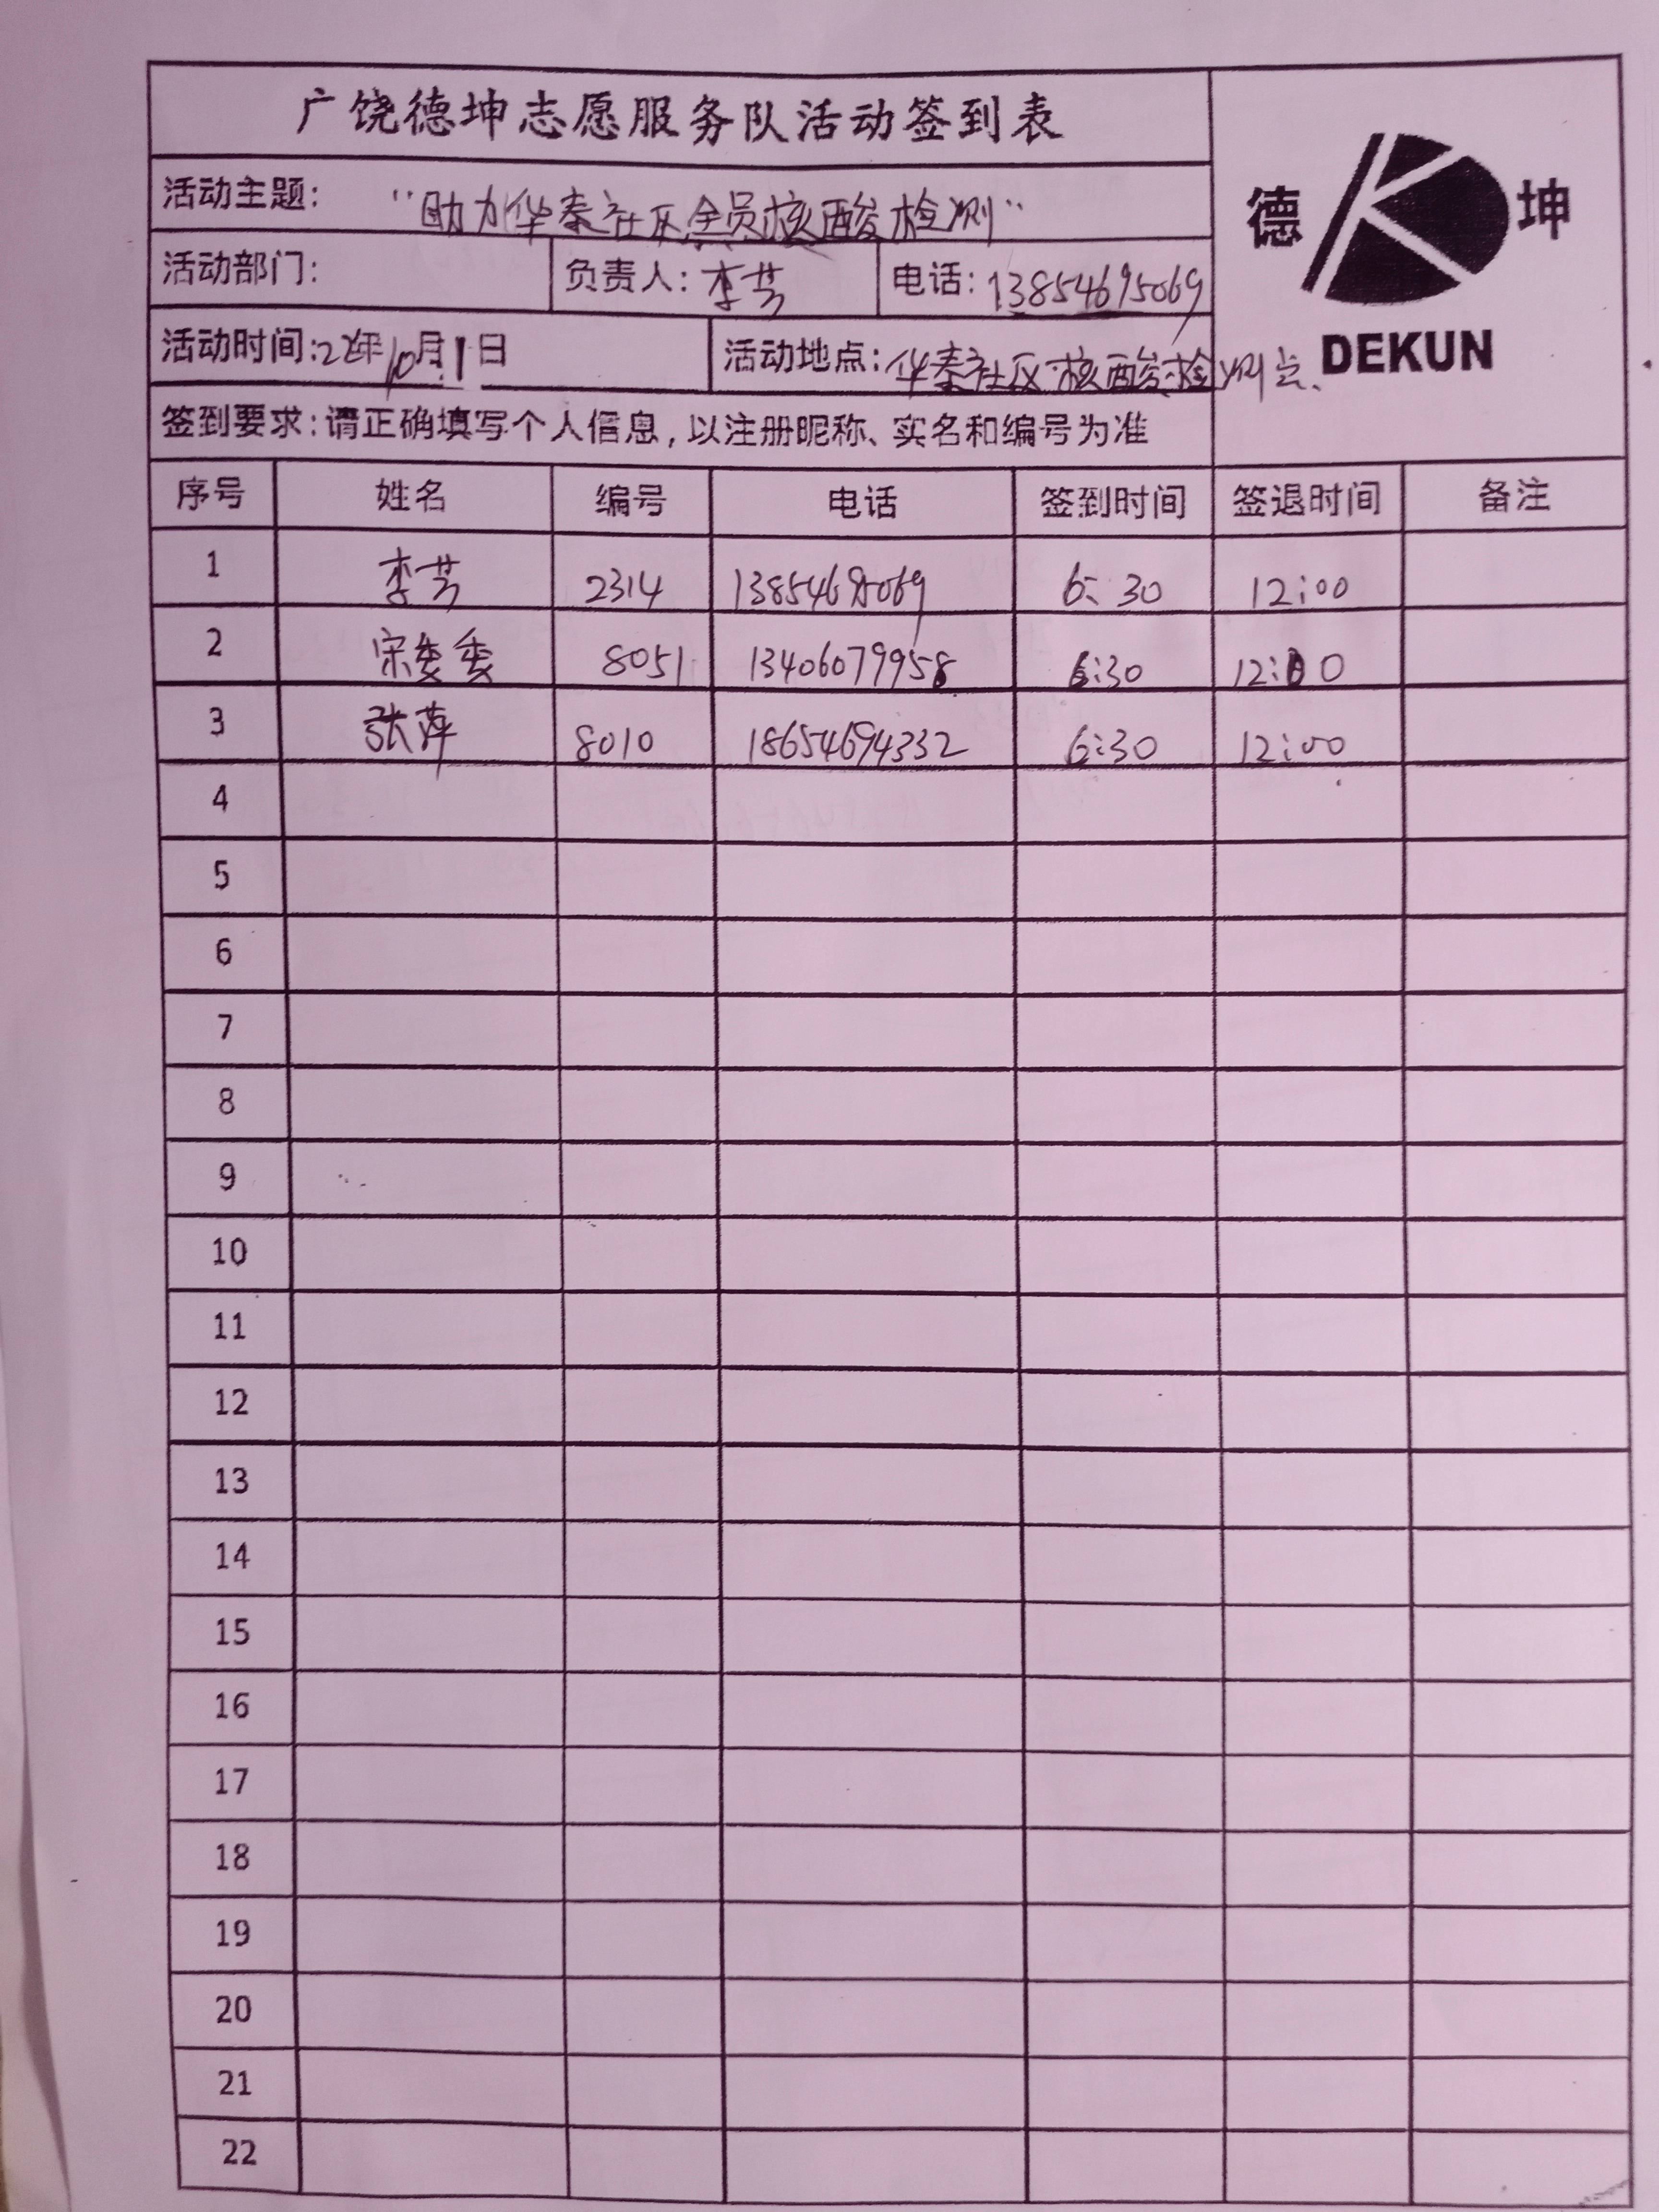 广饶德坤志愿服务队活动签到表
活动主题: "助力华泰社区全员核酸检测"
德 坤
DEKUN
活动部门: 负责人: 李芸 电话: 13854695069
活动时间:22年10月1日 活动地点: 华泰社区核酸检测点
签到要求:请正确填写个人信息,以注册昵称、实名和编号为准
序号 姓名 编号 电话 签到时间 签退时间 备注
1 李芸 2314 13854695069 6:30 12:00
2 宋 8051 13406079958 6:30 12:00
3 张萍 8010 18654694332 6:30 12:00
4
5
6
7
8
9
10
11
12
13
14
15
16
17
18
19
20
21
22